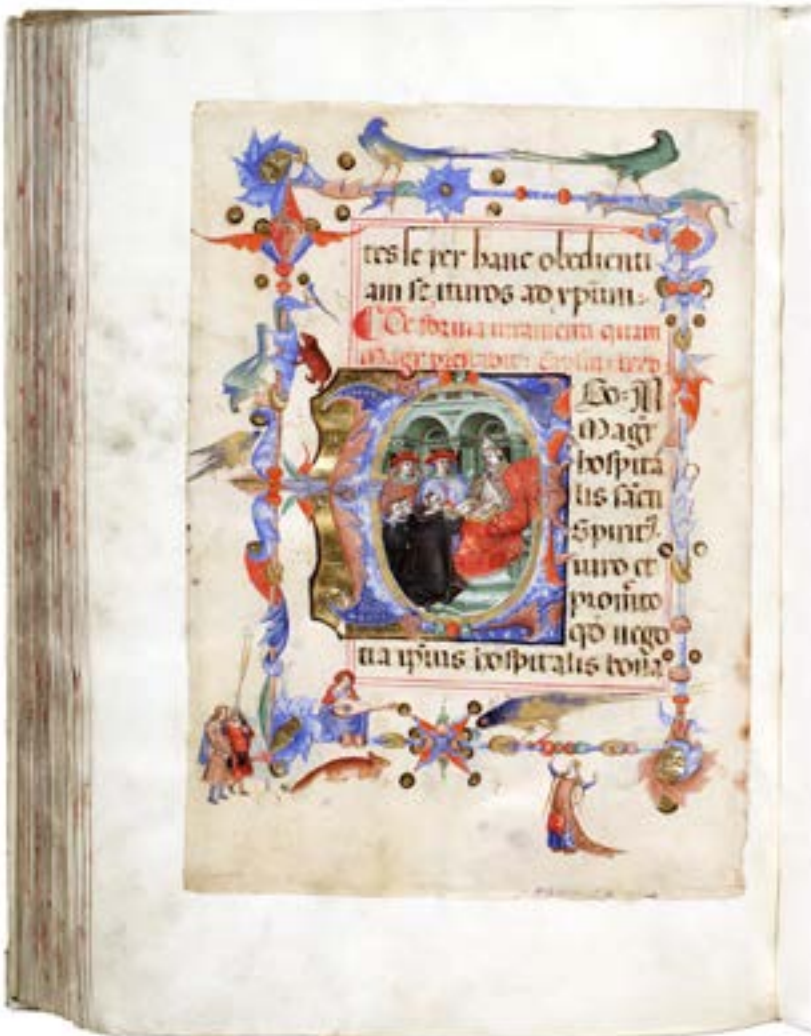 tes se per hanc obedienti
am se ituros ad xp̄ium
De forma iuramenti quam
Magr̄
Ego · N̄
Magr̄
hospita
lis sācti
Spirit᷒
iuro et
promito
qd nego
tia ip̄ius hospitalis bona